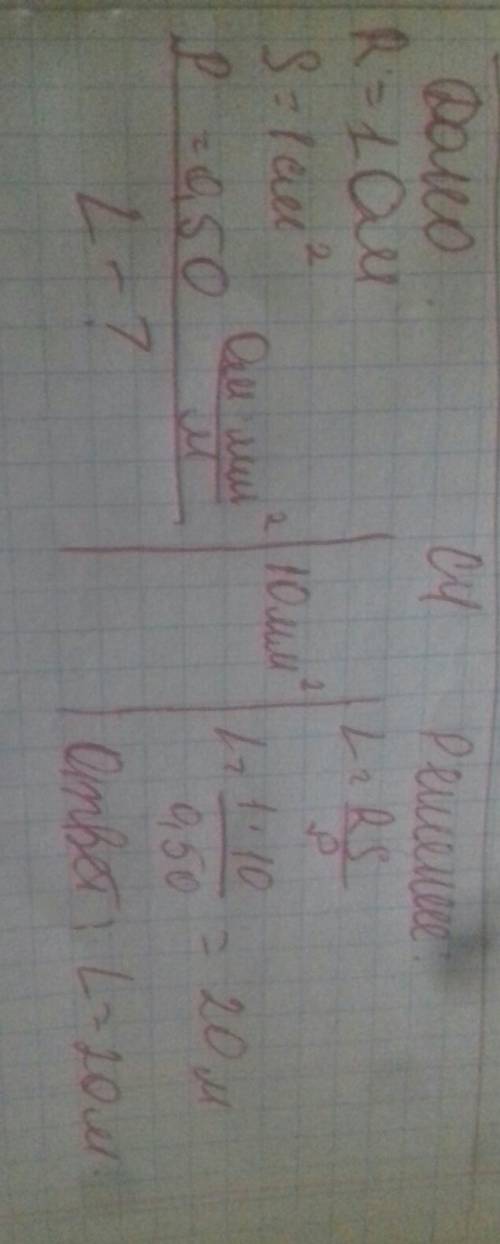 Дано
R = 1 Ом
S = 1 см²
ρ = 0,50 Ом · мм² / м
L - ?
СИ
10 мм²
Решение:
L = RS / ρ
L = 1 · 10 / 0,50 = 20 м
Ответ: L = 20 м.